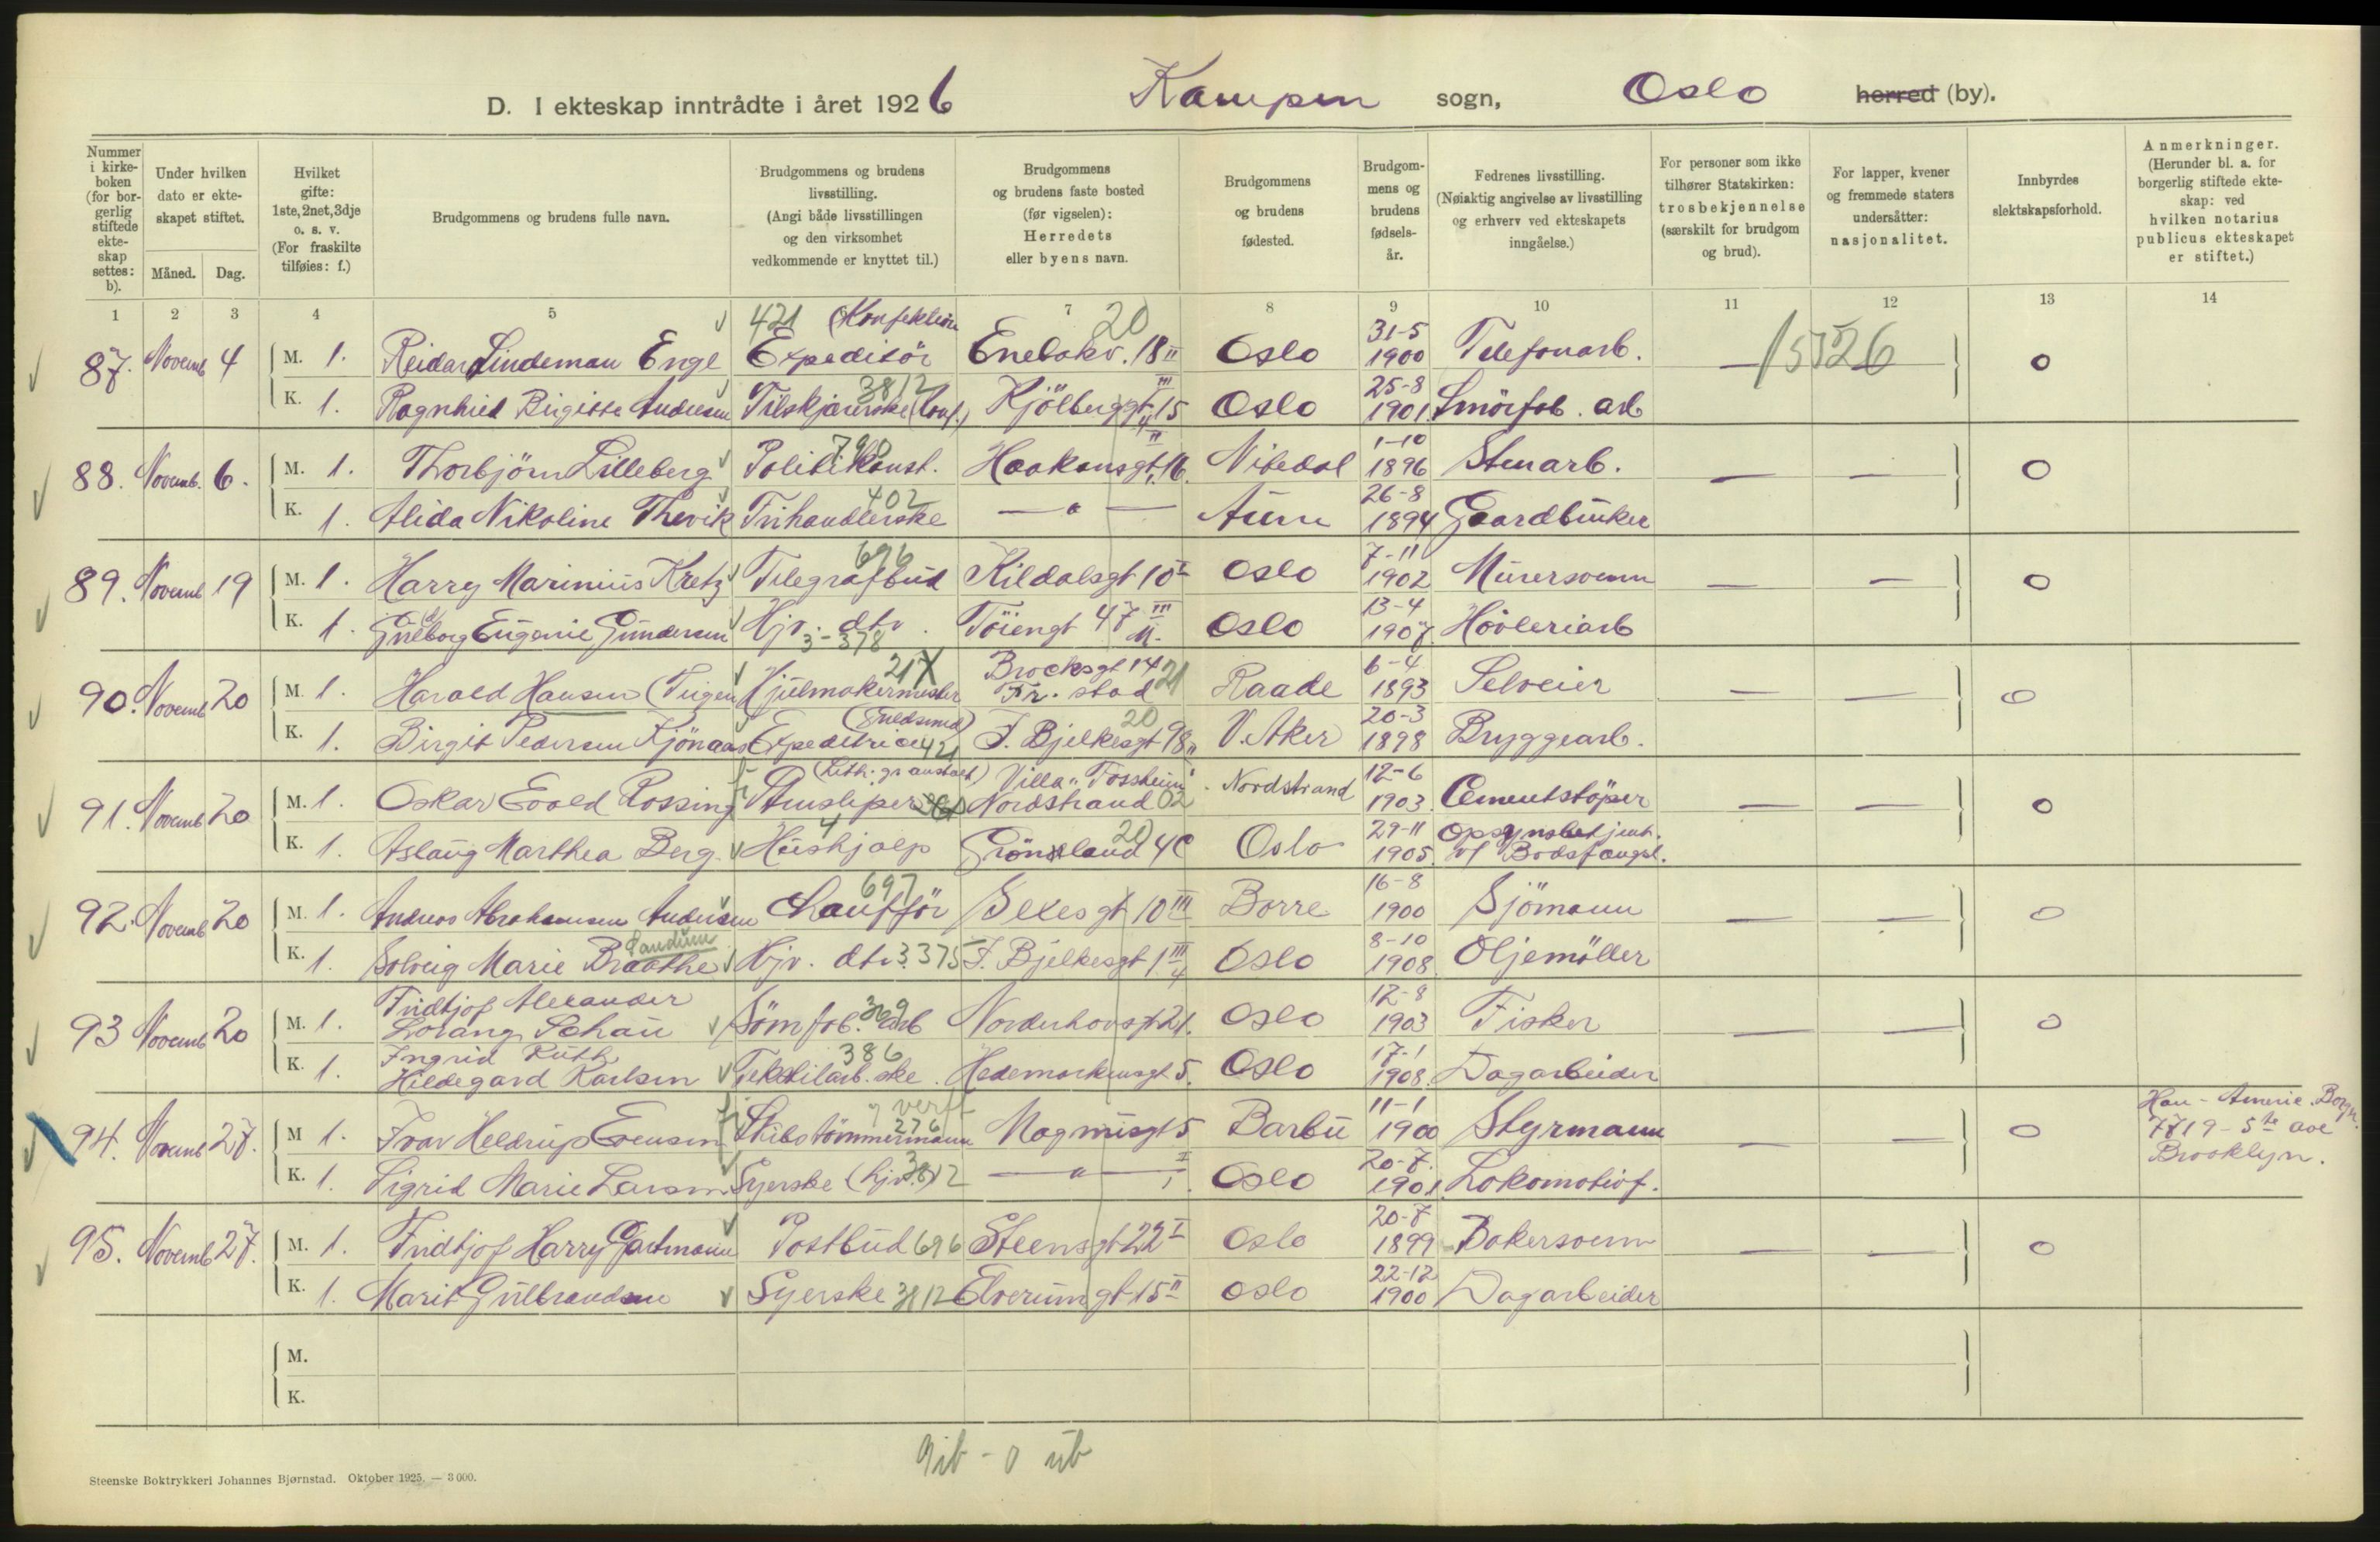 D. I ekteskap inntrådte i året 1926 Kampen sogn, Oslo herred (by).
Nummer i kirke-boken (for bor-gerlig stiftede ekte-skap settes: b).
Under hvilken dato er ekte-skapet stiftet.
Måned. Dag.
Hvilket gifte: 1ste, 2net, 3dje o. s. v. (For fraskilte tilføies: f.)
Brudgommens og brudens fulle navn.
Brudgommens og brudens livsstilling. (Angi både livsstillingen og den virksomhet vedkommende er knyttet til.)
Brudgommens og brudens faste bosted (før vigselen): Herredets eller byens navn.
Brudgommens og brudens fødested.
Brudgom-mens og brudens fødsels-år.
Fedrenes livsstilling. (Nøiaktig angivelse av livsstilling og erhverv ved ekteskapets inngåelse.)
For personer som ikke tilhører Statskirken: trosbekjennelse (særskilt for brudgom og brud).
For lapper, kvener og fremmede staters undersåtter: nasjonalitet.
Innbyrdes slektskapsforhold.
Anmerkninger. (Herunder bl. a. for borgerlig stiftede ekte-skap: ved hvilken notarius publicus ekteskapet er stiftet.)
1 2 3 4 5 7 8 9 10 11 12 13 14
421 (Konfektion 20 31-5
87. Novemb 4 M. 1. Reidar Lindeman Engl Expeditör Enebakv. 18 II Oslo 1900 Telefonarb. — 15526 0
3812 III 25-8
K. 1. Ragnhild Birgitte Andersen Tilskjærerske (Conf.) Kjölberggt. 15 Oslo 1901 Smörfab. arb
790 II 1-10
88. Novemb. 6. M. 1. Thorbjörn Lilleberg Politikonst. Haakonsgt. 16. Nitedal 1896 Stenarb. — — 0
402 26-8
K. 1. Alida Nikoline Thevik Frihandlerske — " — Aure 1894 Gaardbruker
696 7-11
89. Novemb 19 M. 1. Harry Marinius Kretz Telegrafbud Kildalsgt 10 I Oslo 1902 Murersvenn — — 0
13-4
K. 1. Gudborg Eugenie Gundersen Hjv. dtv. Töiengt 47 III Oslo 1907 Hövleriarb
3-378 4.
217 Brochsgt 14 21 6-4
90. Novemb 20 M. 1. Harald Hansen (Teigen Hjulmakermester Fr. stad Raade 1893 Selveier — — 0
(Guldsmed) 20 20-3
K. 1. Birgit Pedersen Kjönaas Expeditrice 421 J. Bjelkesgt 98 II V. Aker 1898 Bryggearb.
(Lith. gr. anstalt) Villa "Fossheim" 12-6
91. Novemb 20 M. 1. Oskar Evald Rossing Stensliper Nordstrand 02 Nordstrand 1903. Cementstöper — — 0
4 20 29-11 Opsynsbetjent.
K. 1. Aslaug Marthea Berg Hushjælp Grönland 4C Oslo 1905. v/ Bodsfængsl.
697 16-8
92. Novemb 20 M. 1. Andreas Abrahamsen Andersen Chauffør Sexesgt 10 III Borre 1900 Sjömann — — 0
Sandum 8-10
K. 1. Solveig Marie Braathe Hjv. dtv. 3.375 J. Bjelkesgt 1 III Oslo 1908. Oljemöller
4
Fridtjof Alexander 369 12-8
93 Novemb 20 M. 1. Lorang Schau Sömfab. arb Norderhovsgt 21. Oslo 1903 Fisker — — 0
Ingrid Ruth 386 17-1
K. 1. Hildegard Karlsen Tekstilarb.ske. Hedemarkensgt 5. Oslo 1908. Dagarbeider
verft 11-1 Han - Americ. Borger.
94. Novemb 27. M 1. Ivar Heldrup Evensen Skibstömmermann 276 Magnusgt 5 Barbu 1900 Styrmann — — 0 7719 - 5te ave
Brooklyn.
I 20-7.
K. 1. Sigrid Marie Larsen Syerske (hjv.) 3812 — " — Oslo 1901. Lokomotivf.
20-7
95. Novemb 27. M. 1. Fridtjof Harry Gartmann Postbud 696 Steensgt 22 I Oslo 1899 Bakersvenn — — 0
22-12
K. 1. Marit Gulbrandsen Syerske 3812 Elverumgt 15 II Oslo 1900 Dagarbeider
M.
K.
9ib - 0 ub
Steenske Boktrykkeri Johannes Bjørnstad. Oktober 1925. — 3 000.